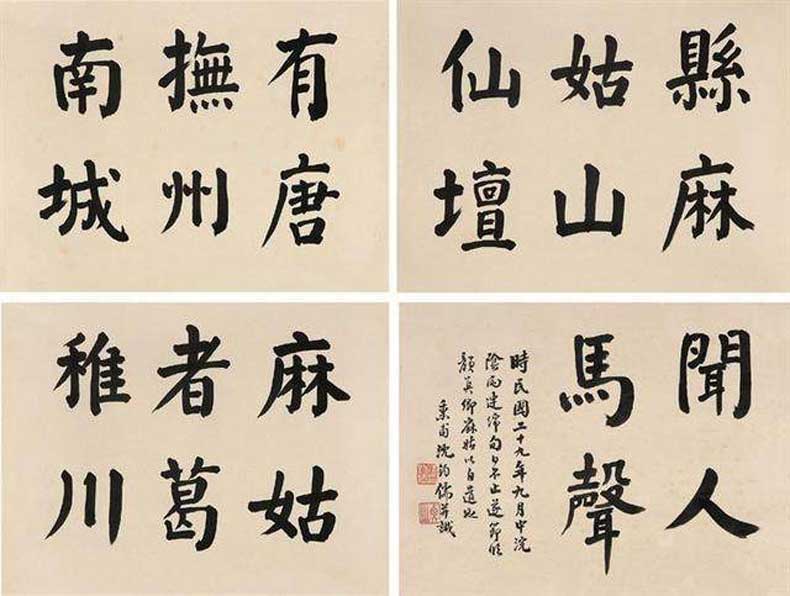 有唐
撫州
南城
縣麻
姑山
仙壇
麻姑
者葛
稚川
聞人
馬聲
時民國二十九年九月中浣
陰雨連綿旬日不止遂節臨
顏真卿麻姑以自遣也
秉甫沈鈞儒并識